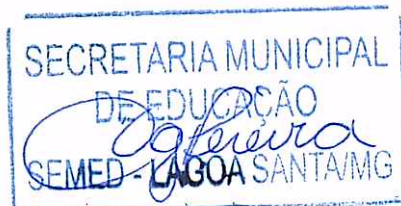 SECRETARIA MUNICIPAL
DE EDUCAÇÃO
SEMED - LAGOA SANTA/MG